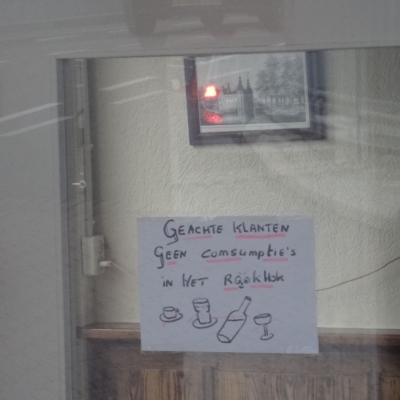 GEACHTE KLANTEN
GEEN COMSUMPTIE'S
IN HET ROOKHOK